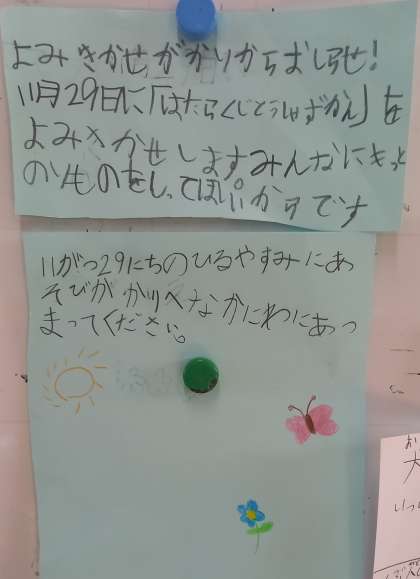 よみきかせがかりからお知らせ!
11月29日に「はたらくじどうしゃずかん」を
よみきかせしますみんなにきっと
のりものをしってほしいからです
11がつ29にちのひるやすみにあ
そびがかりへなかにわにあつ
まってください。
お
大
いっ